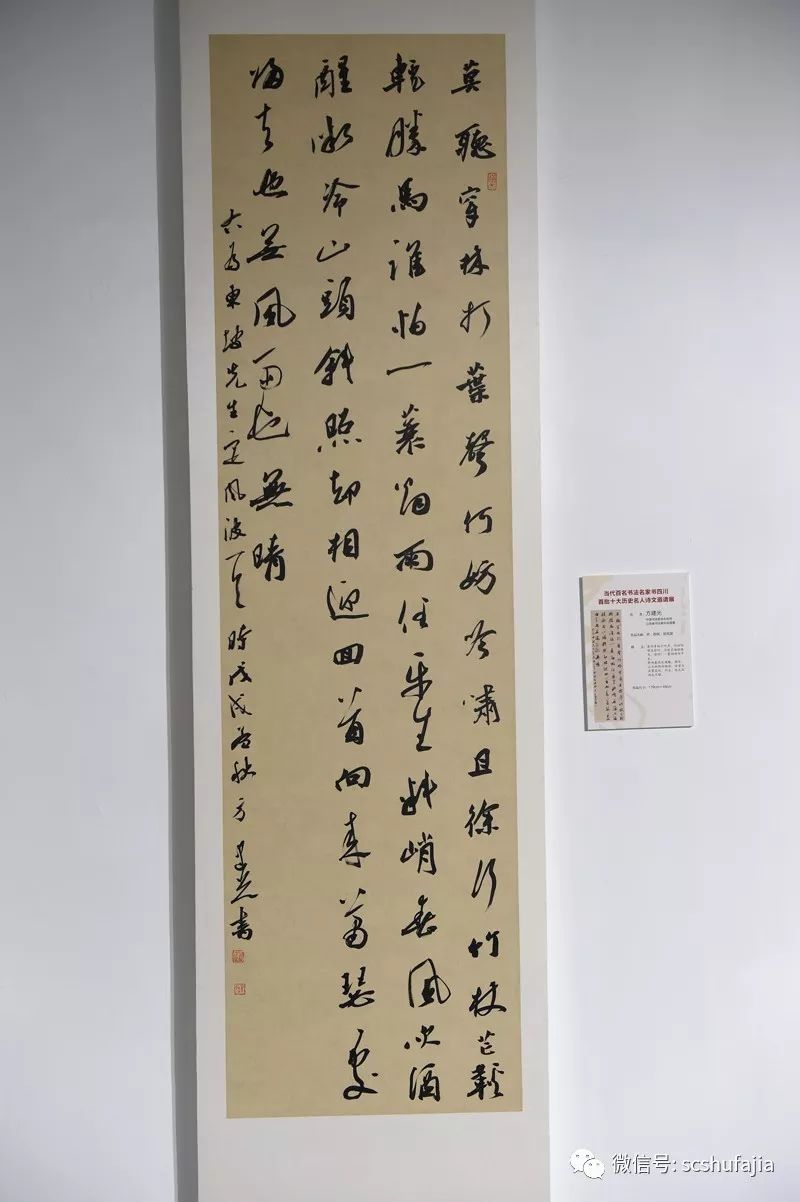 莫聽穿林打葉聲何妨吟嘯且徐行竹杖芒鞵
輕勝馬誰怕一蓑烟雨任平生料峭春風吹酒
醒微冷山頭斜照却相迎回首向來蕭瑟處
歸去也無風雨也無晴
右為東坡先生定風波一 時戊戌秋方曙光書
当代百名书法名家书四川
首批十大历史名人诗文邀请展
方曙光
微信号: scshufajia